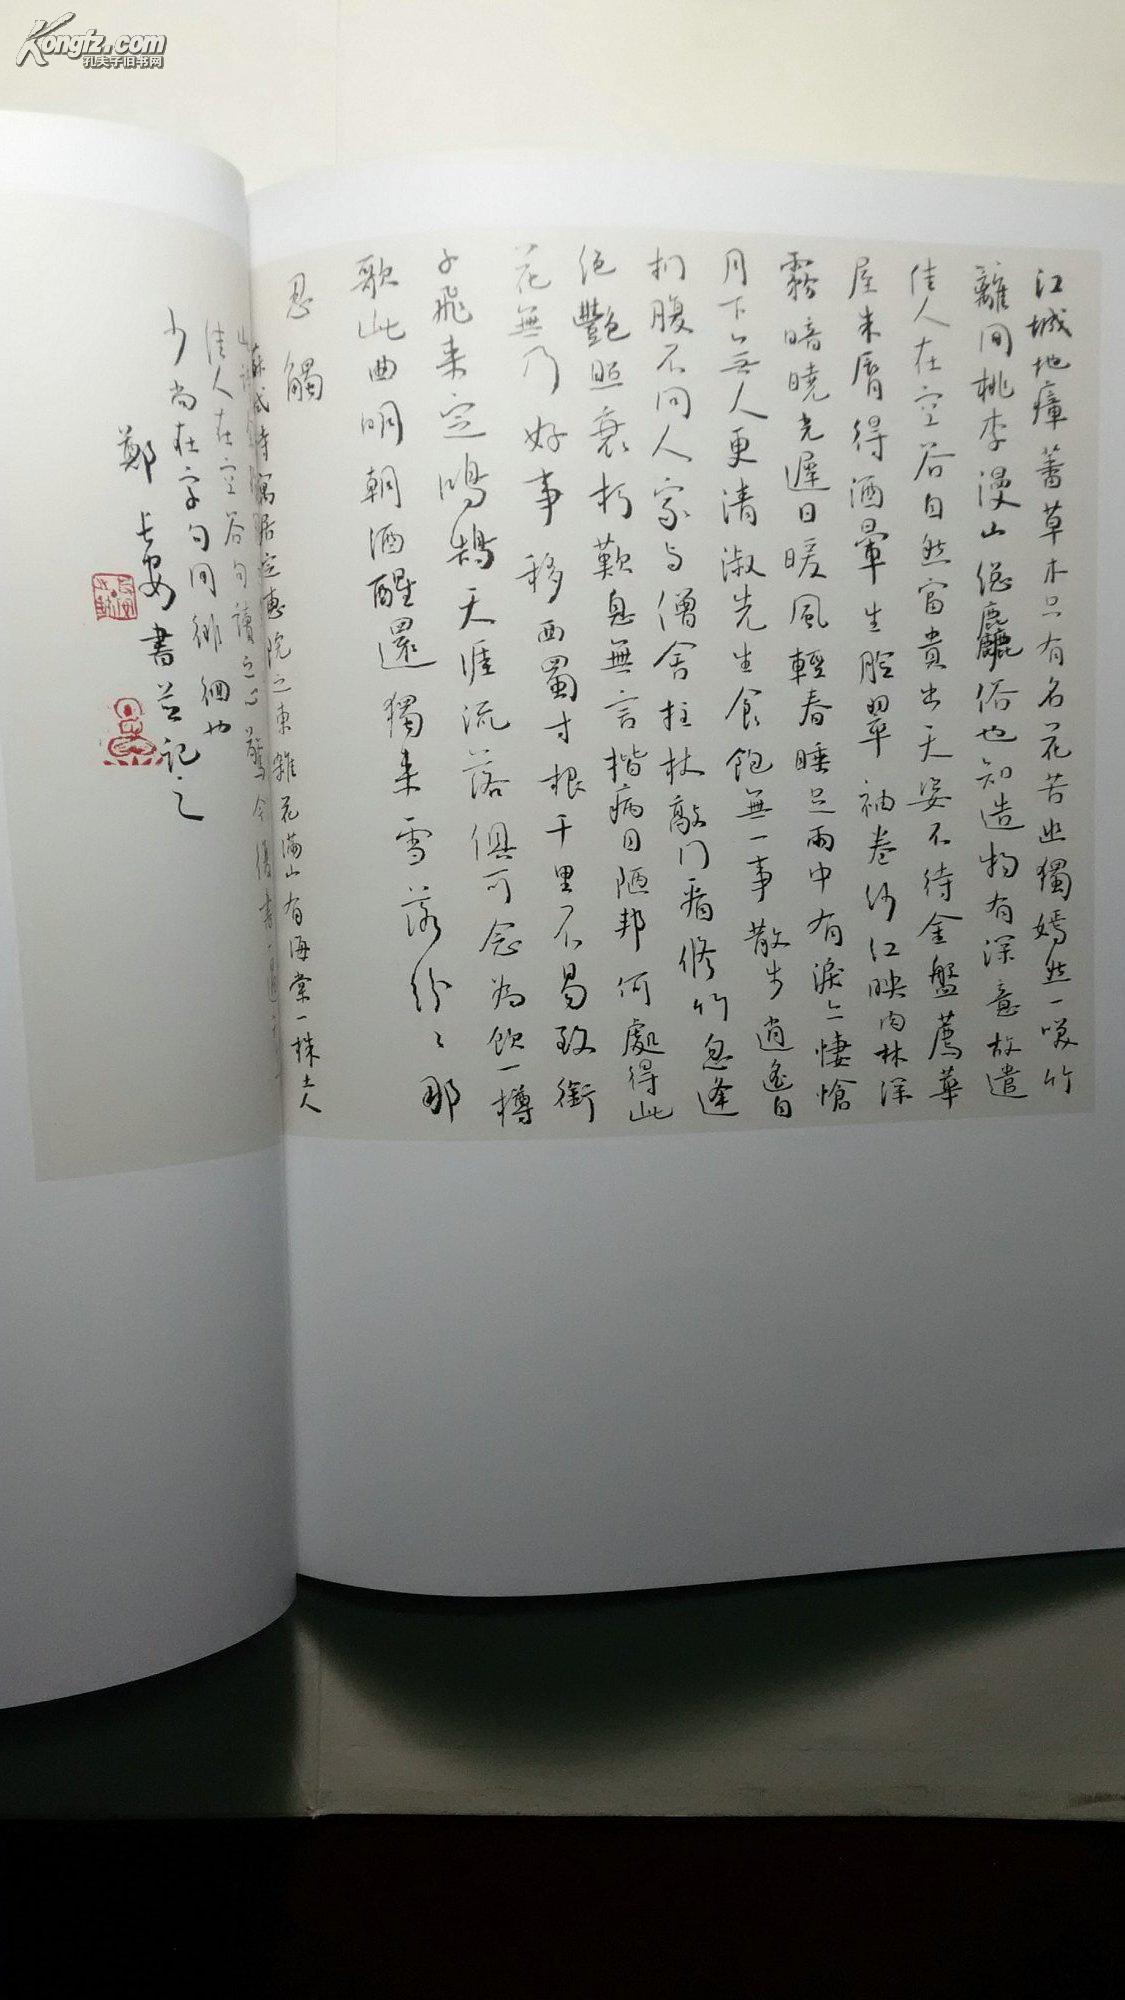 Kongfz.com
孔夫子旧书网
江城地瘴蕃草木只有名花苦幽獨嫣然一笑竹
籬間桃李漫山總麤俗也知造物有深意故遣
佳人在空谷自然富貴出天姿不待金盤薦華
屋朱脣得酒暈生臉翠袖卷紗紅映肉林深
霧暗曉光遲日暖風輕春睡足雨中有淚亦悽愴
月下無人更清淑先生食飽無一事散步逍遙自
捫腹不問人家與僧舍拄杖敲門看修竹忽逢
絕艷照衰朽歎息無言揩病目陋邦何處得此
花無乃好事移西蜀寸根千里不易致銜
子飛來定鴻鵠天涯流落俱可念為飲一樽
歌此曲明朝酒醒還獨來雪落紛々那
忍觸
蘇軾詩寓居定惠院之東雜花滿山有海棠一株土人
佳人在空谷句讀之心驚今復書一過
少尚在字句间徘徊也
鄭 書并記之